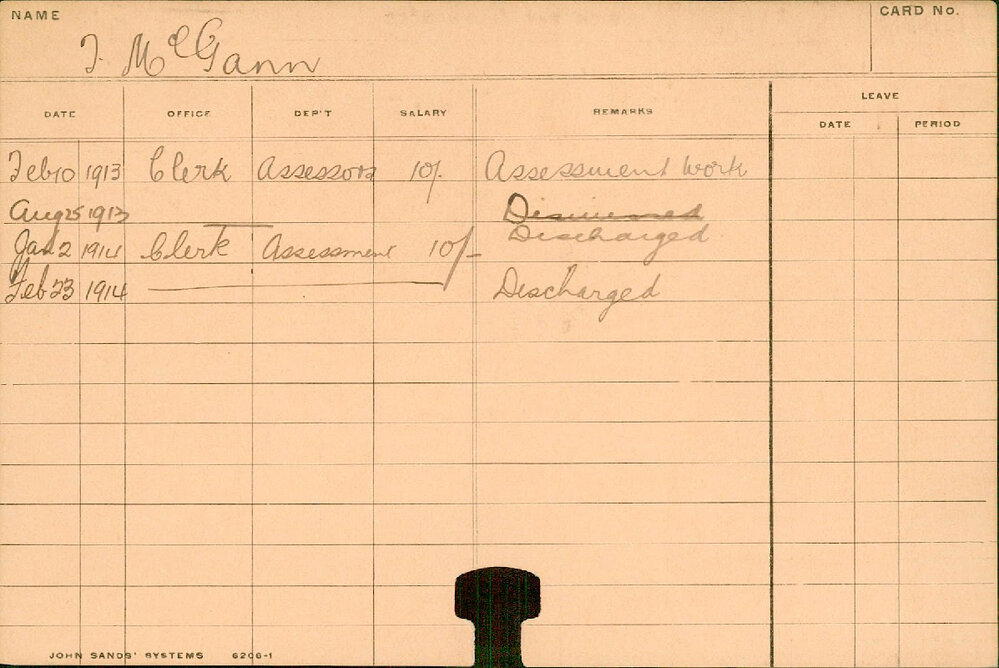 NAME CARD No.
T. McGann
LEAVE
DATE OFFICE DEP'T SALARY REMARKS
DATE PERIOD
Feb 10 1913 Clerk Assessors 10/- Assessment Work
Aug 25 1913 Dismissed
Discharged
Jan 2 1914 Clerk Assessment 10/-
Feb 23 1914 Discharged
JOHN SANDS' SYSTEMS 6206-1